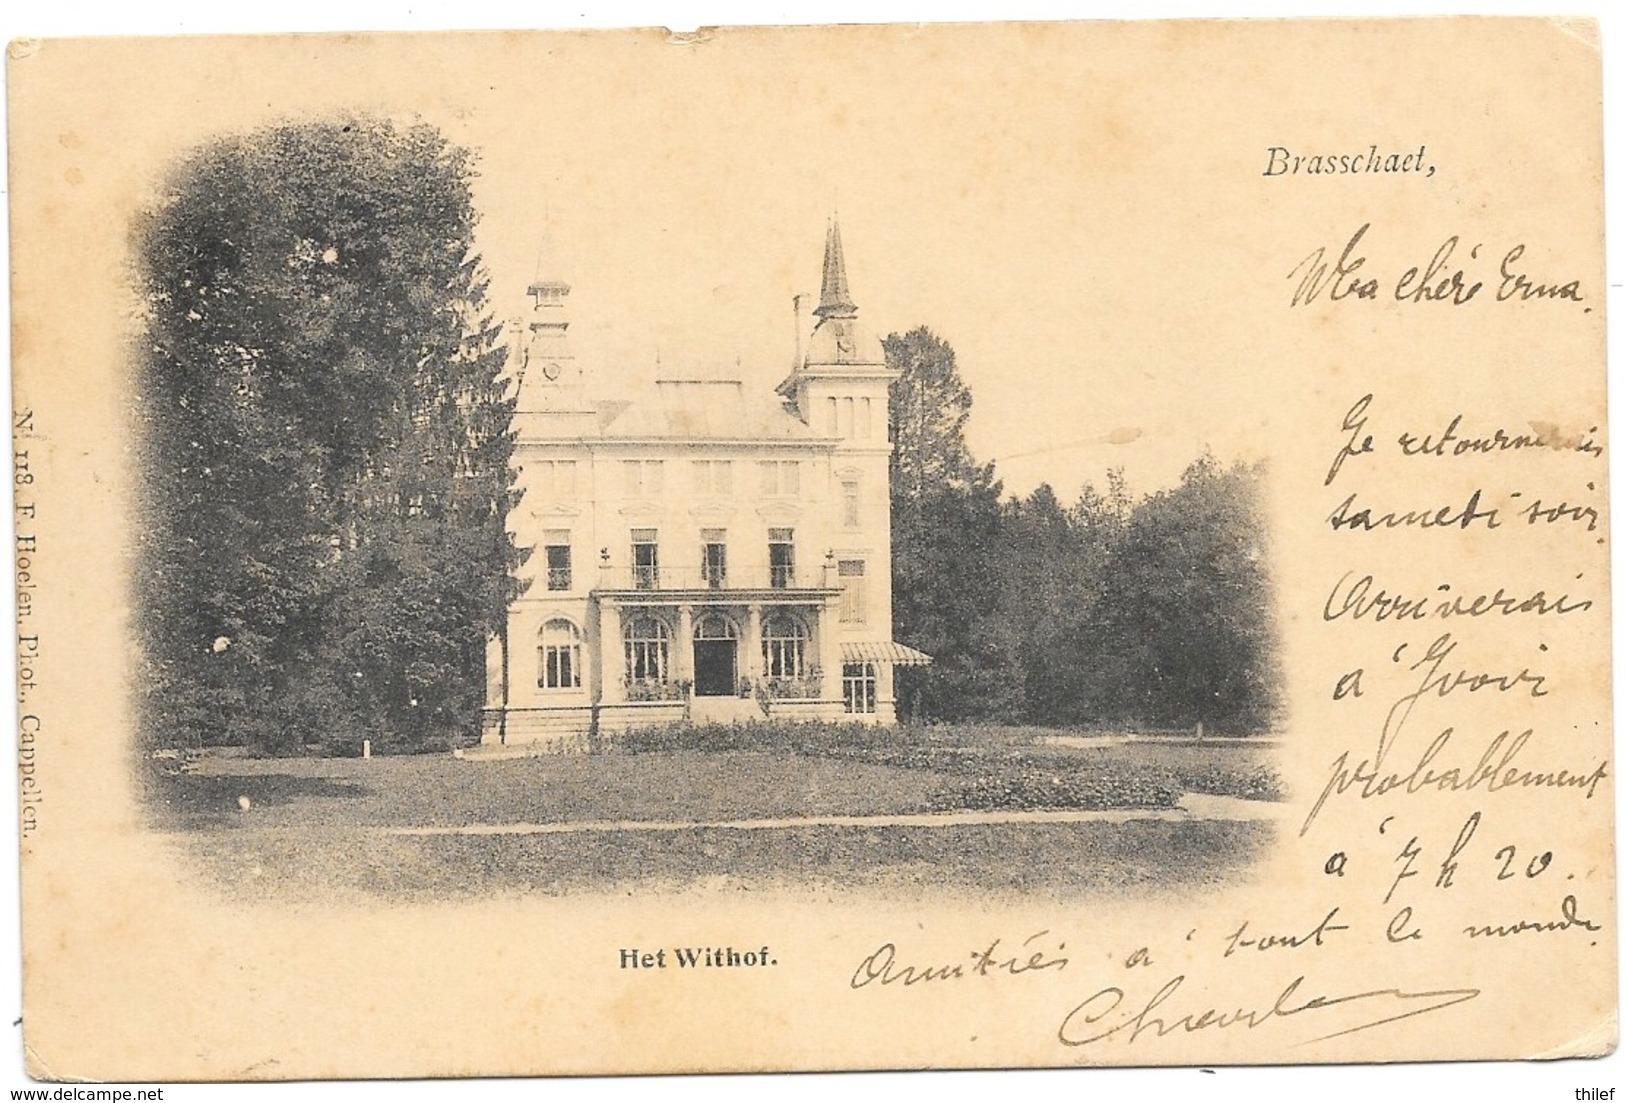 Brasschaet,
Ma chère Erna.
Je retournerais
samedi soir.
Arriverais
à Yvoir
probablement
à 7 h 20.
Amitiés à tout le monde
Het Withof.
Nr. 118. F. Hoelen, Phot., Cappellen.
delcampe.net
thilef